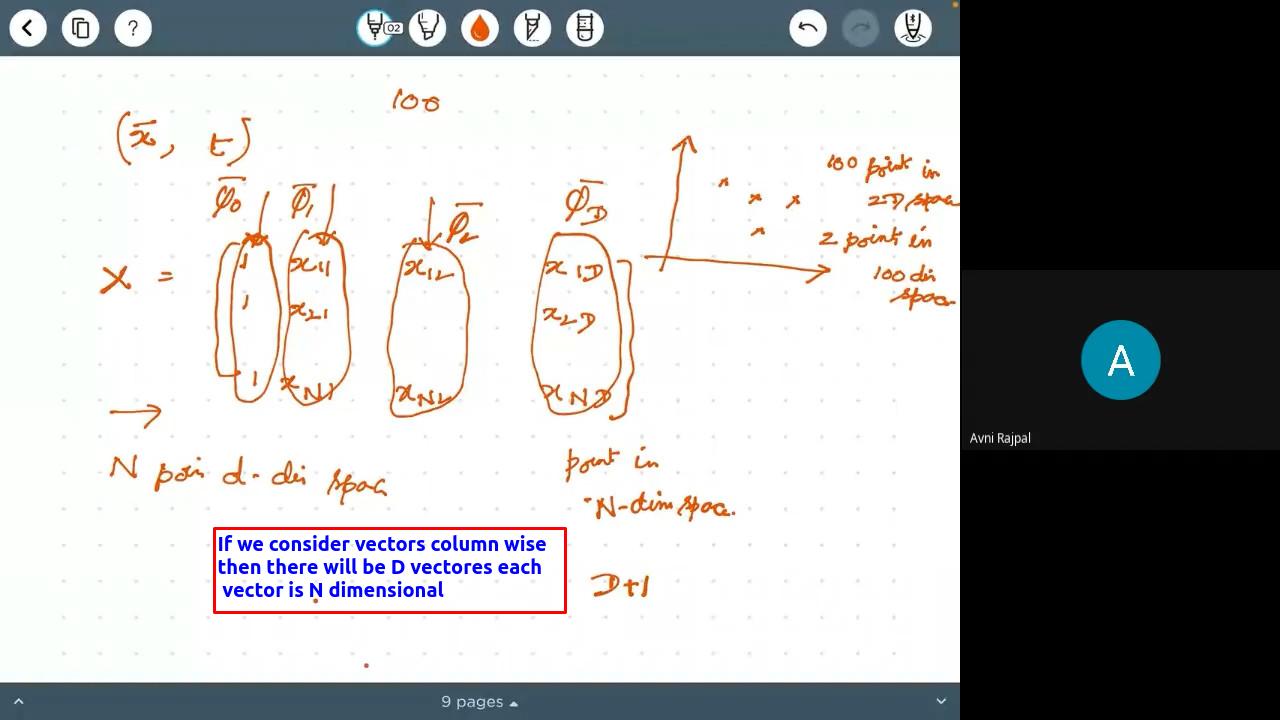 02
100
(x̄, t)
φ̄0 φ̄1 φ̄2 φ̄D
X =
1 x11 x12 x1D
1 x21 x2D
1 xN1 xN2 xND
100 point in
2D space
2 point in
100 dim
space
N poin d-dim space
point in
N-dim space.
If we consider vectors column wise
then there will be D vectores each
vector is N dimensional
D+1
9 pages
A
Avni Rajpal